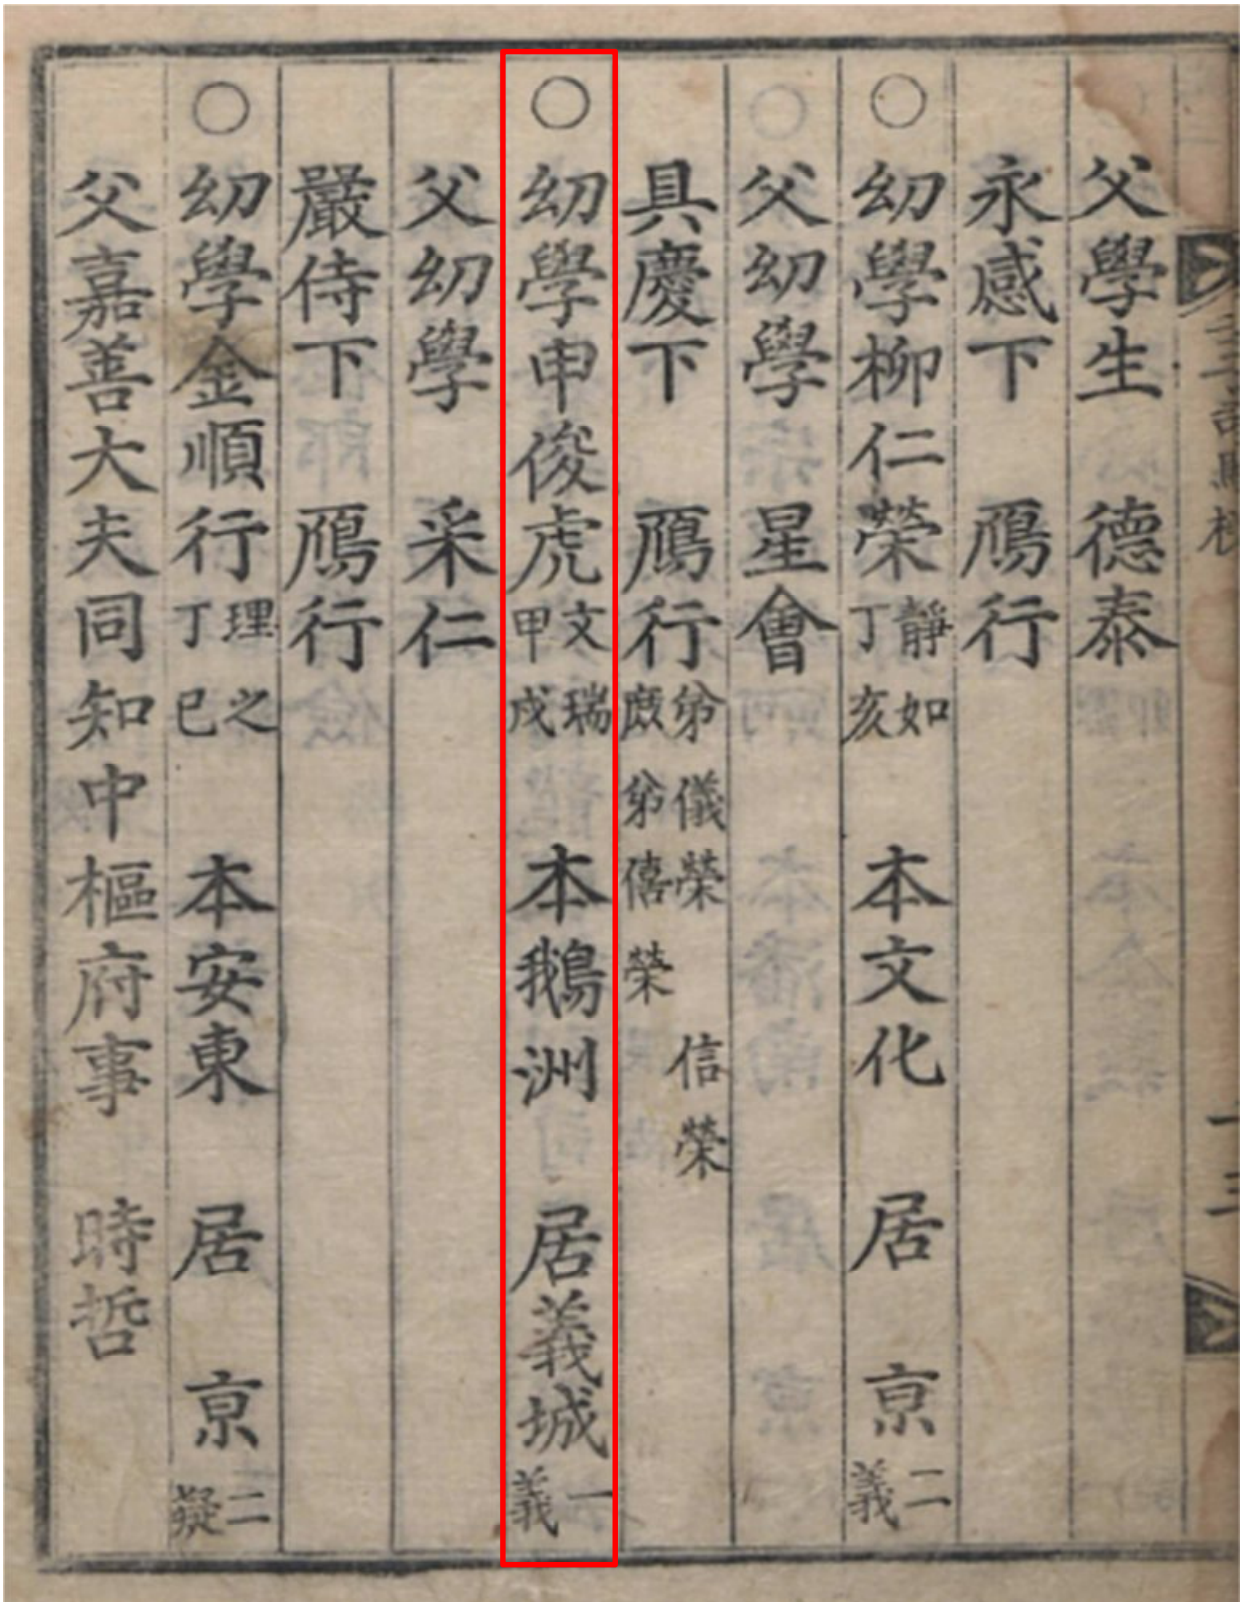 父學生 德泰
永感下 鴈行
○幼學柳仁榮 靜如 丁亥 本文化 居 亰 二義
父幼學 星會
具慶下 鴈行 弟儀榮 信榮 庶弟僖榮
○幼學申俊虎 文瑞 甲戌 本鵝洲 居義城 一義
父幼學 采仁
嚴侍下 鴈行
○幼學金順行 理之 丁巳 本安東 居 亰 二疑
父嘉善大夫同知中樞府事 時哲